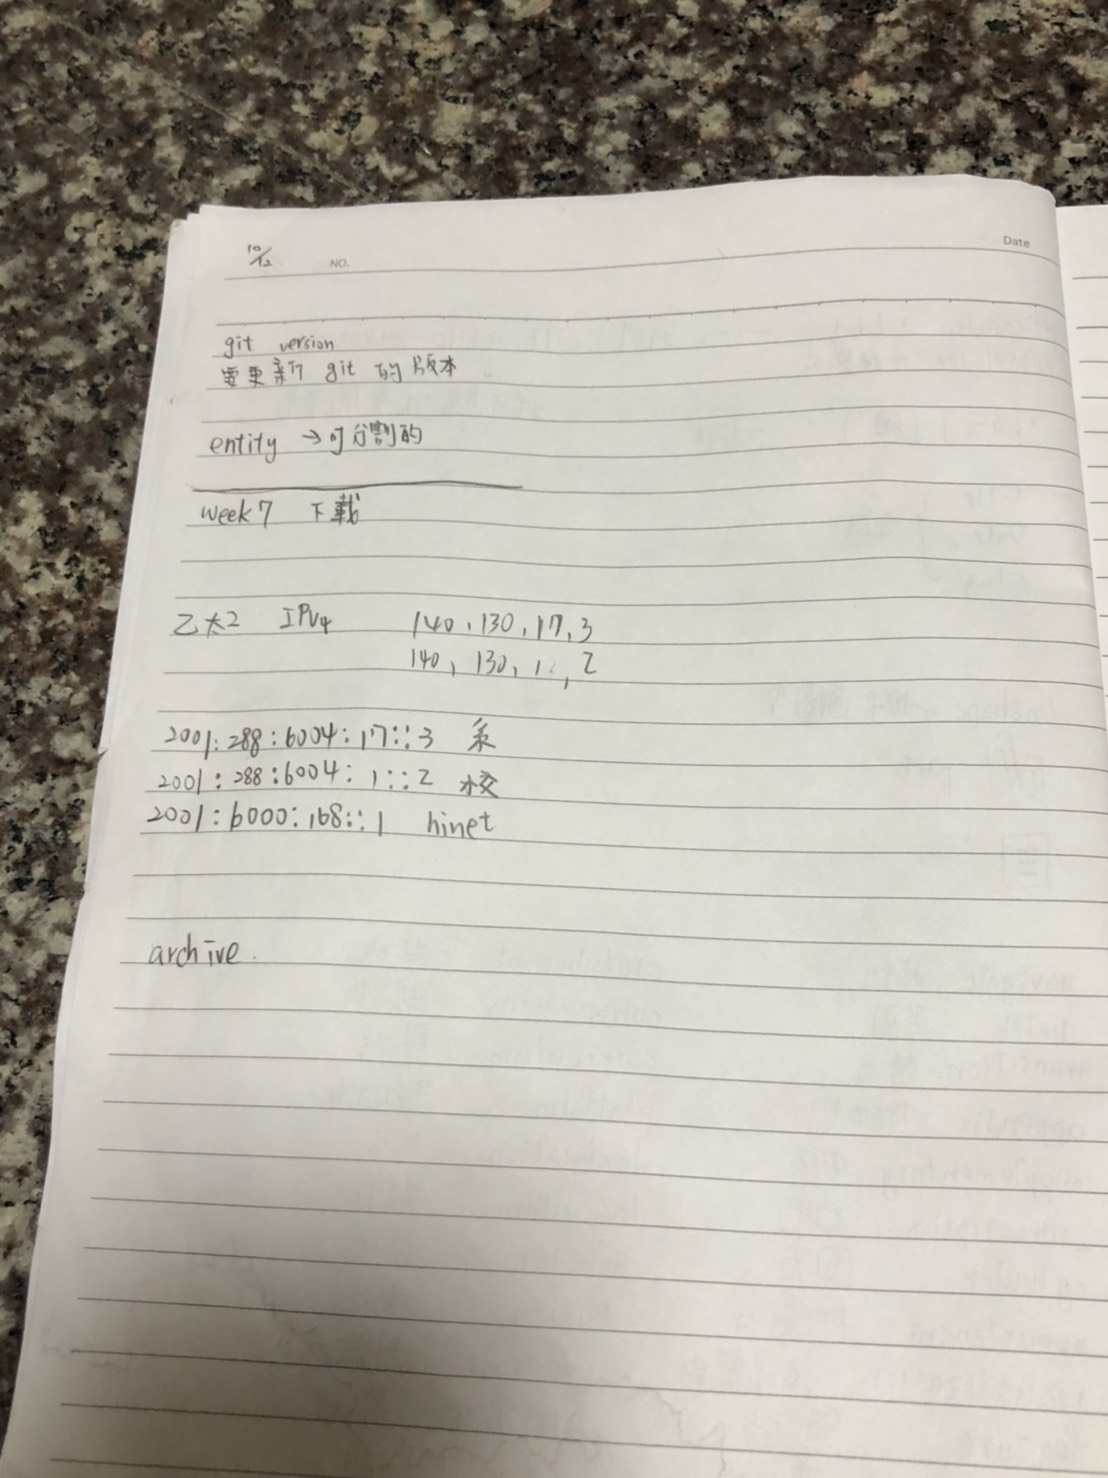 10/12 NO. Date
git version
要更新 git 的版本
entity → 可分割的
week7 下載
乙太2 IPv4 140.130.17.3
140.130.1.2
2001:288:6004:17::3 系
2001:288:6004:1::2 校
2001:b000:168::1 hinet
archive.